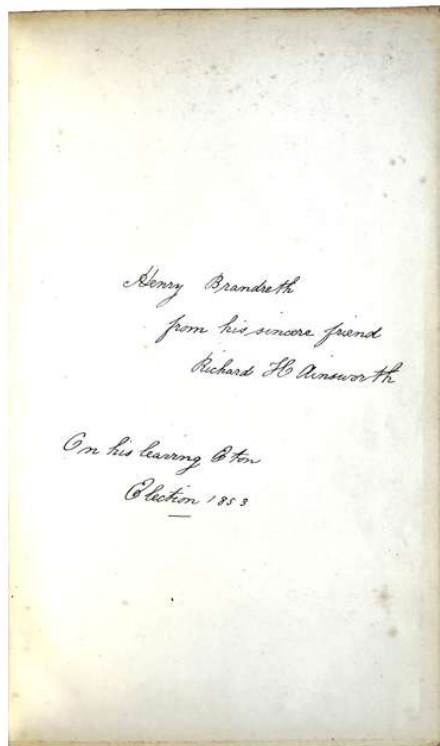 Henry Brandreth
from his sincere friend
Richard H Ainsworth
On his leaving Eton
Election 1853